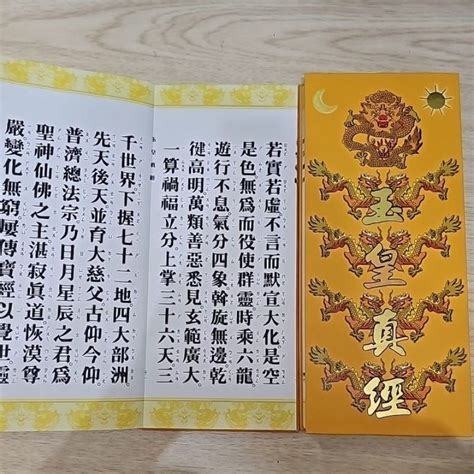 玉皇真經
若實若虛不言而默宣大化是空
是色無爲而役使群靈時乘六龍
遊行不息氣分四象斡旋無邊乾
健高明萬類善惡悉見玄範廣大
一算禍福立分上掌三十六天三
千世界下握七十二地四大部洲
先天後天並育大慈父古仰今仰
普濟總法宗乃日月星辰之君爲
聖神仙佛之主湛寂眞道恢漠尊
嚴變化無窮屢傳寶經以覺世靈